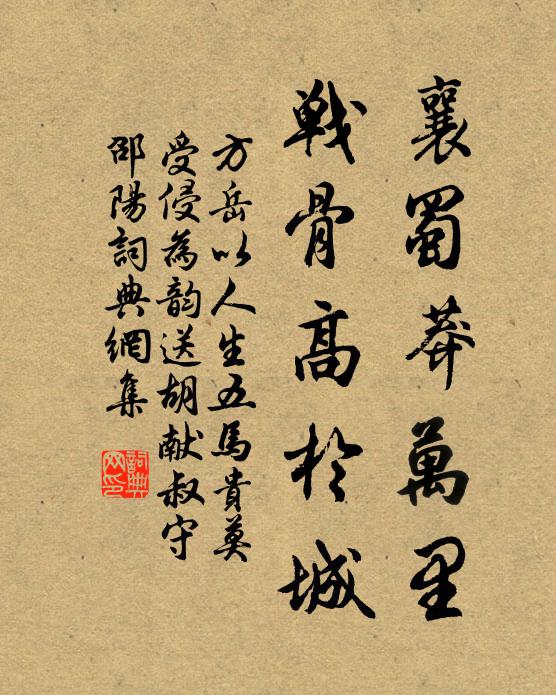 襄蜀莽萬里
戰骨高於城
方岳以人生五馬貴莫
受侵為韵送胡献叔守
邵陽詞典網集
詞典
网印